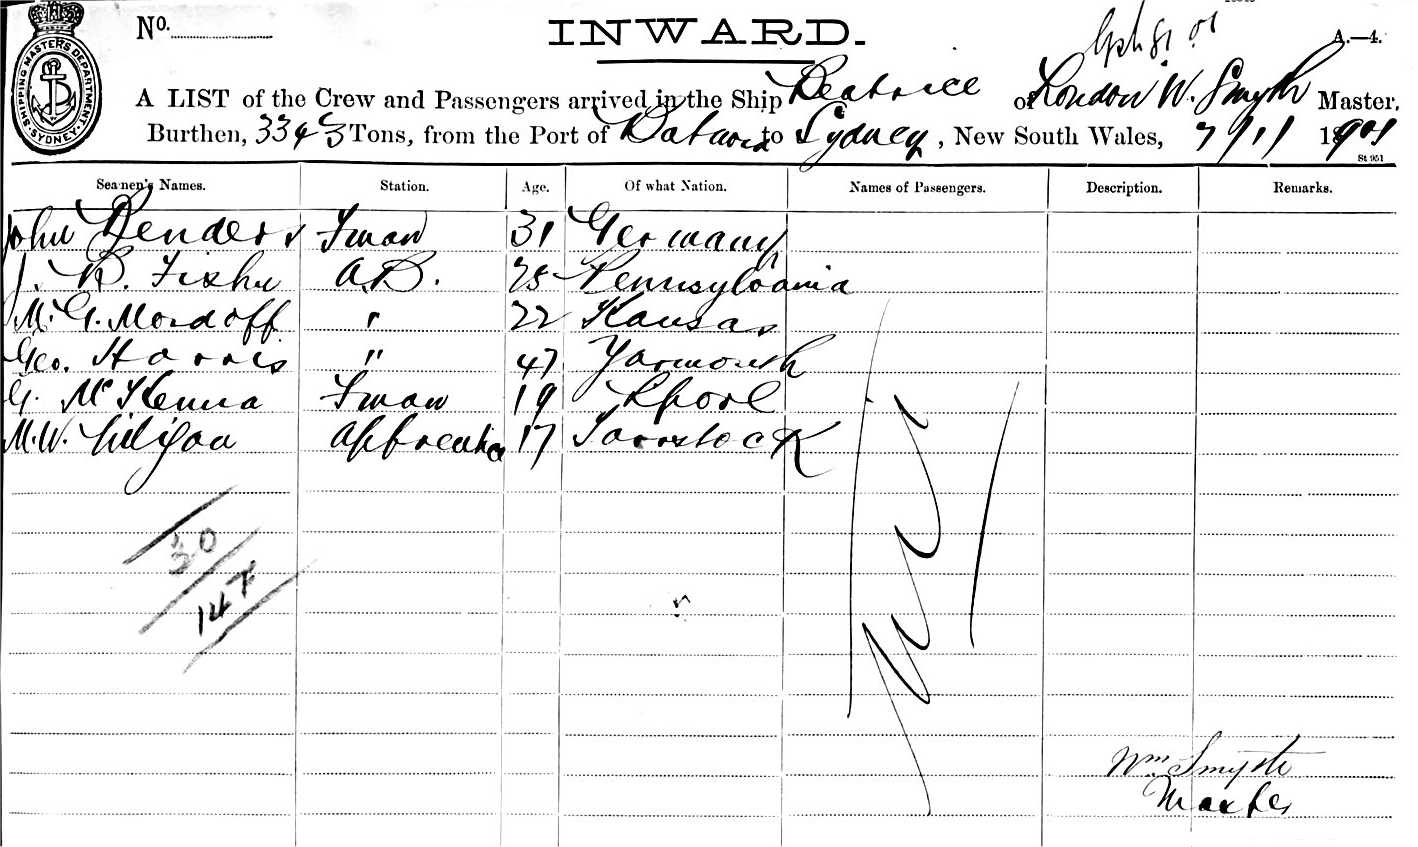 SHIPPING MASTERS DEPARTMENT SYDNEY
No.
INWARD.
A.—4.
A LIST of the Crew and Passengers arrived in the Ship Beatrice of London W. Smyth Master,
Burthen, Tons, from the Port of to Sydney, New South Wales, 7/11 1901
St 951
Seamen's Names. Station. Age. Of what Nation. Names of Passengers. Description. Remarks.
John Benders 31 Germany
J. B. Fisher A.B. 25 Pennsylvania
M. G. Mordoff " 22 Kansas
Geo. Harris " 47 Yarmouth
G. McKenna 19 Lpool
M. W. apprentice 17
147
Wm Smyth
Master